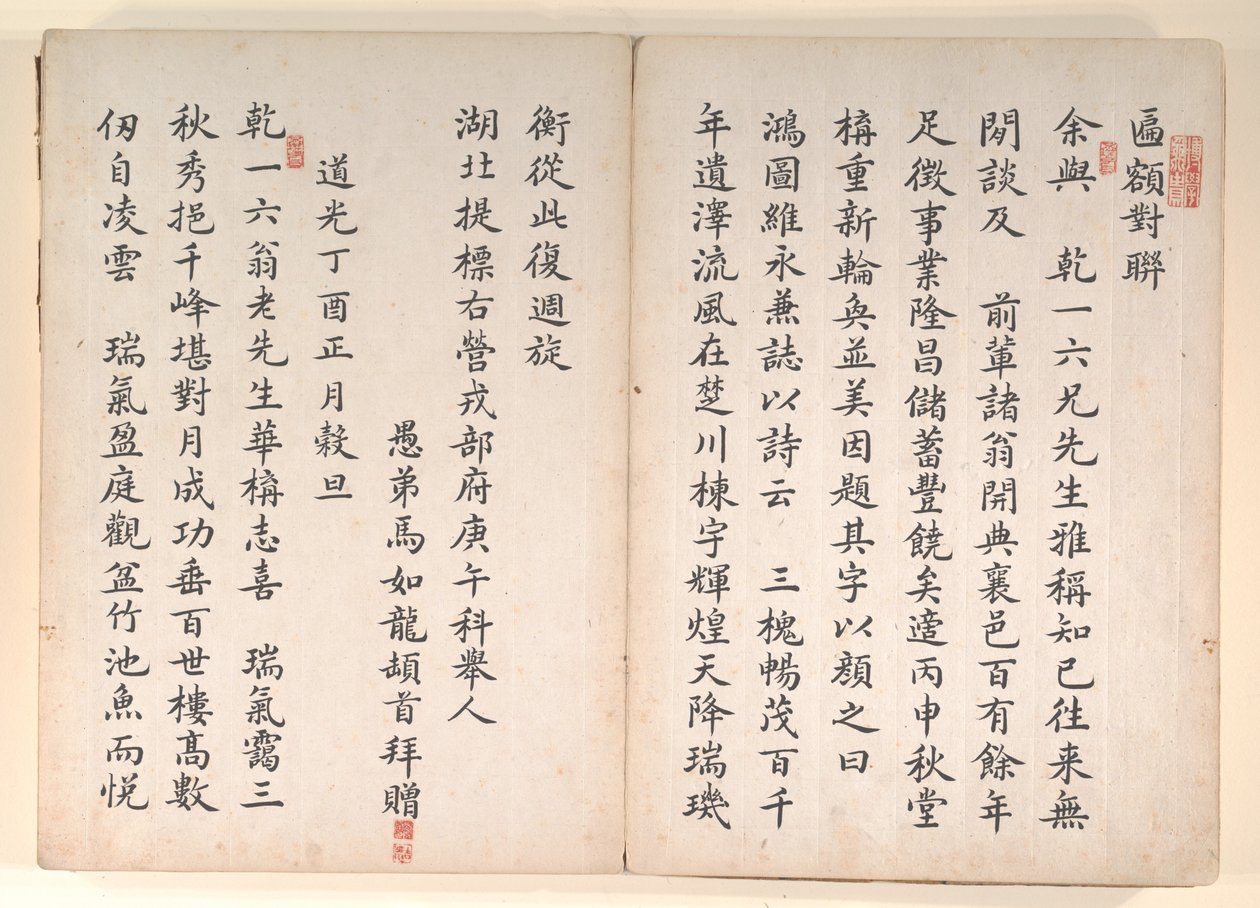 匾額對聯
余與 乾一六兄先生雅稱知己往来無
間談及 前輩諸翁開典襄邑百有餘年
足徵事業隆昌儲蓄豐饒矣適丙申秋堂
構重新輪奐並美因題其字以顏之曰
鴻圖維永兼誌以詩云 三槐暢茂百千
年遺澤流風在楚川棟宇輝煌天降瑞璣
衡從此復週旋
湖北提標右營戎部府庚午科舉人
愚弟馬如龍頓首拜贈
道光丁酉正月榖旦
乾一六翁老先生華構志喜 瑞氣靄三
秋秀挹千峰堪對月成功垂百世樓高數
仭自凌雲 瑞氣盈庭觀盆竹池魚而悦